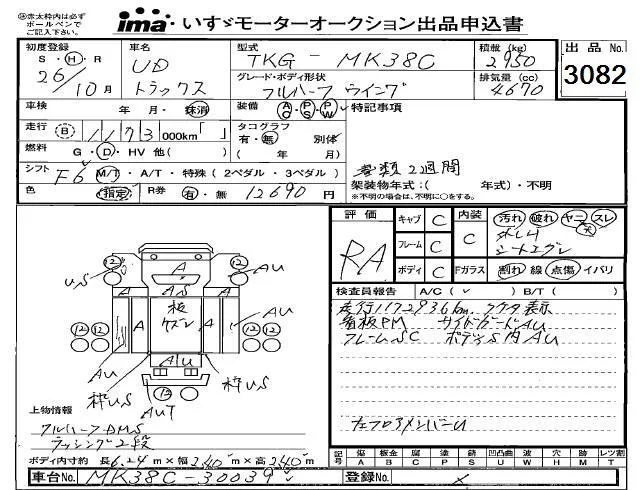 ㊟赤太枠内は必ず
ボールペンで
ご記入下さい。
ima いすゞモーターオークション出品申込書
初度登録 S・H・R 26/10月
車名 UD トラックス
型式 TKG - MK38C
積載(kg) 2950
グレード・ボディ形状 フルハーフ ウイング
排気量(cc) 4670
出品No. 3082
車検 年・月・抹消
装備 AC・PS・PW
特記事項
走行 B 1173 000km「 」
タコグラフ 有・無 別体
( 年 月)
燃料 G・D・HV 他( )
書類2週間
シフト F6 M/T・A/T・特殊(2ペダル・3ペダル)
架装物年式:( 年式)・不明
※不明の場合は、不明に○をする。
色 指定 R券 有・無 12690円
評価 RA
キャブ C
フレーム C
ボディ C
内装 C
汚れ 破れ ヤニ スレ
Fガラス 割れ 線 点傷 イバリ
検査員報告 A/C( ✓ ) B/T( )
走行1172936km. メータ表示
看板PM サイドガードAU
フレームSC ボデー S内AU
フロアメンバーU
12 12
US A AU
AS
12 12 A 板 A AU 12 12
ケズレ
AU AU
枠US 枠US
AUT 13
上物情報
フルハーフDMS
ラッシング2段
ボディ内寸約 長6.24m×幅2.40m×高2.40m
記号 傷 板金 腐 塗 錆 凹凸曲 W 穴 跡 レツ割
A B C P S U W H M T
車台No. MK38C-30039
登録No.